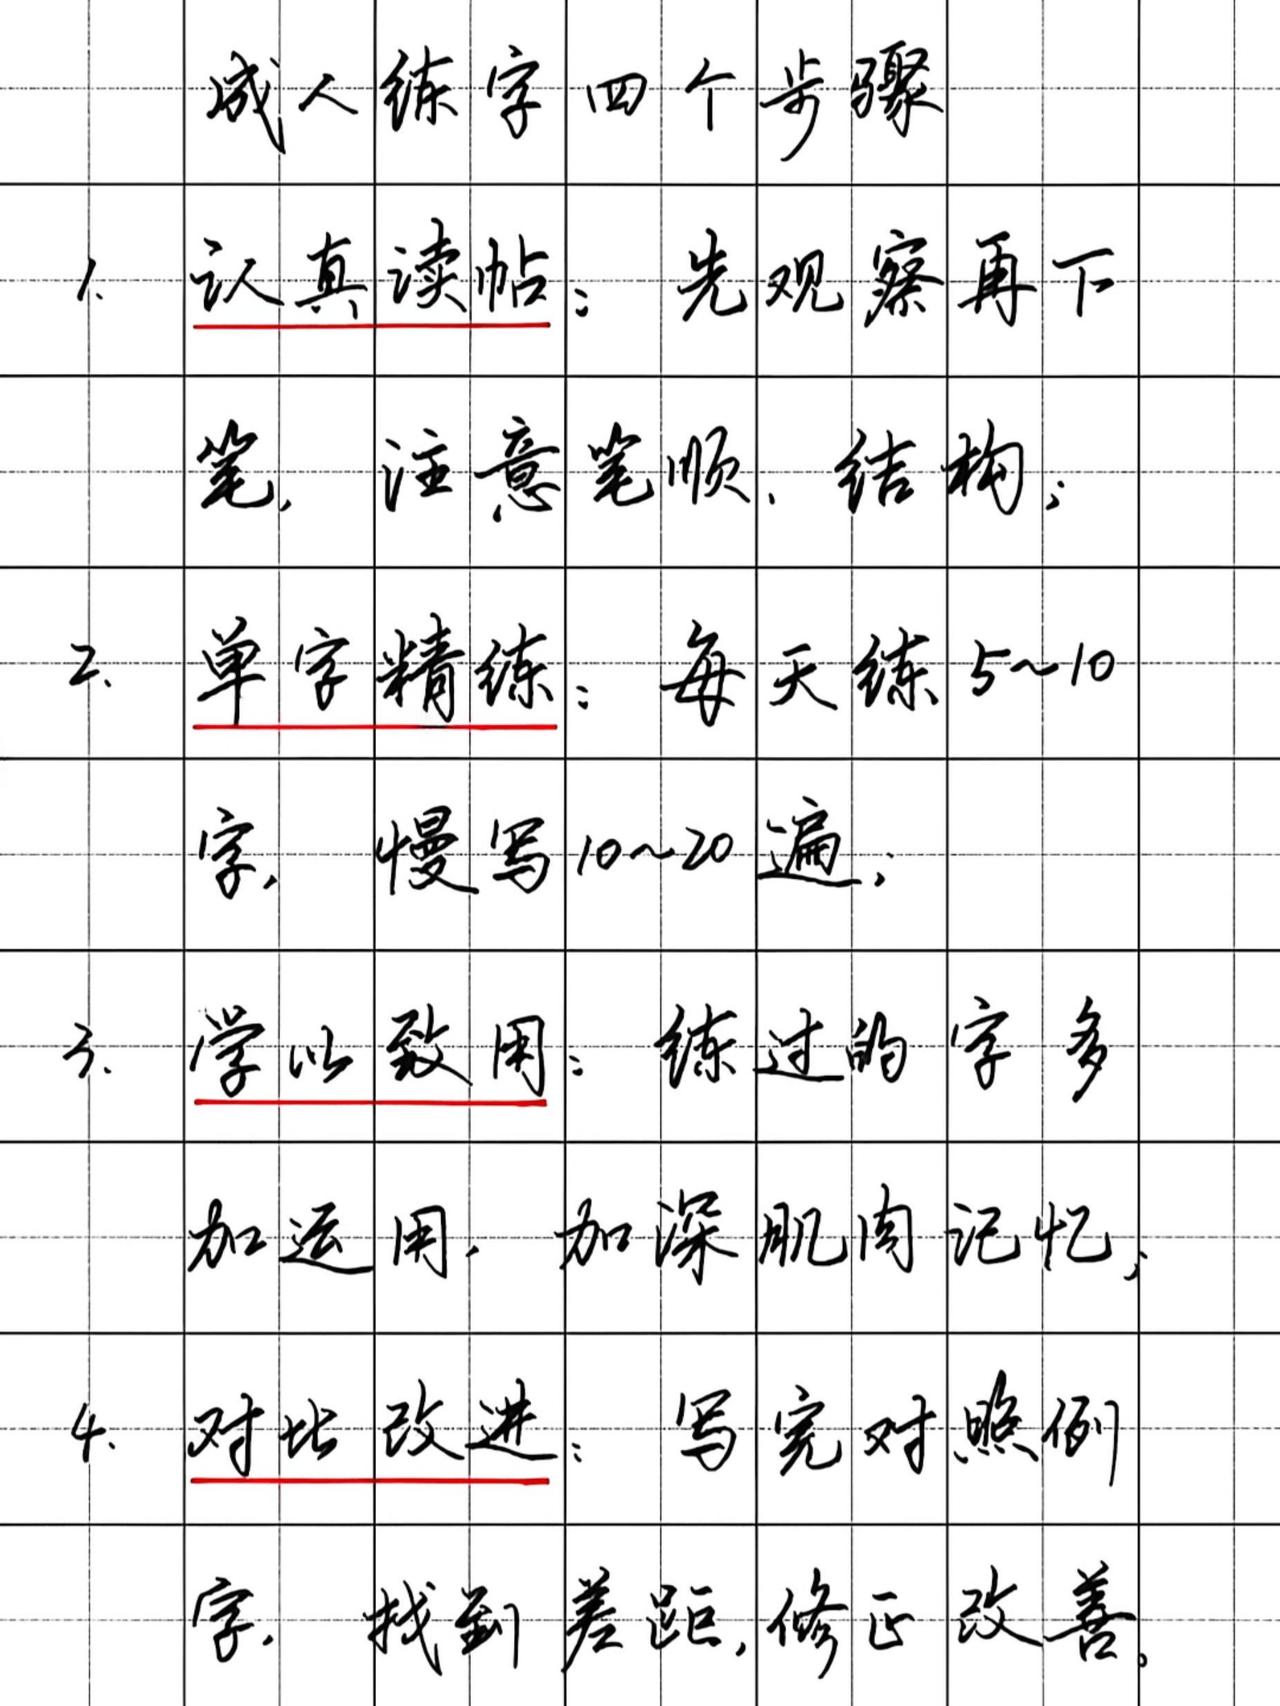 成人练字四个步骤
1. 认真读帖：先观察再下
笔，注意笔顺、结构；
2. 单字精练：每天练5~10
字，慢写10~20遍；
3. 学以致用：练过的字多
加运用，加深肌肉记忆；
4. 对比改进：写完对照例
字，找到差距，修正改善。